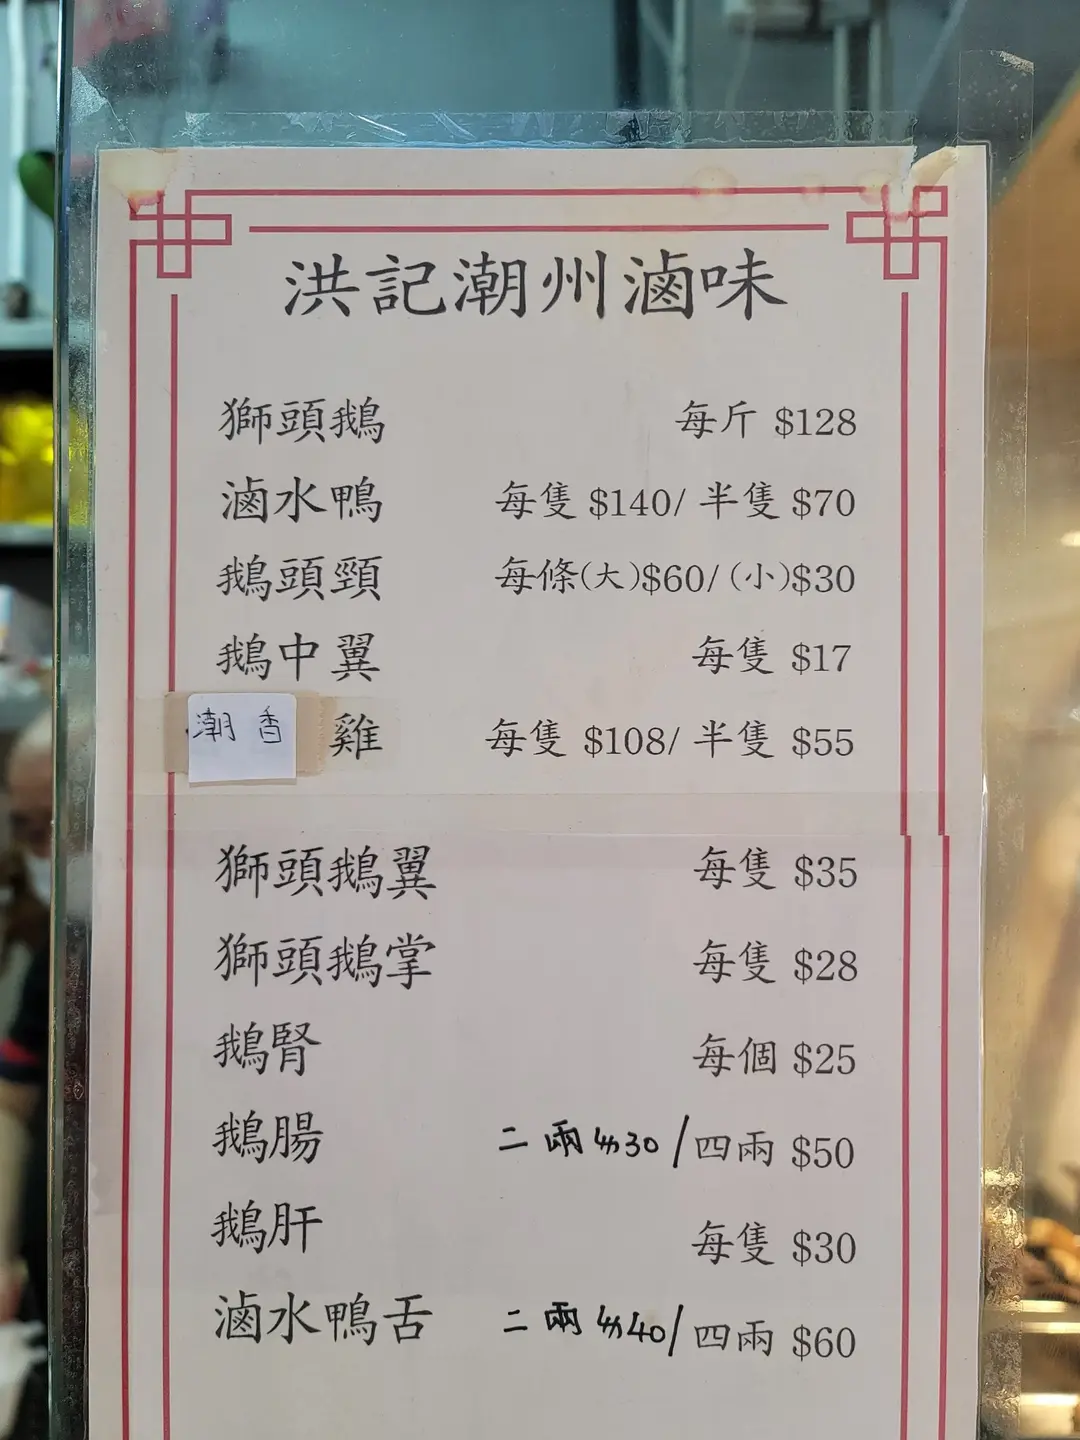 洪記潮州滷味
獅頭鵝 每斤 $128
滷水鴨 每隻 $140/ 半隻 $70
鵝頭頸 每條(大)$60/(小)$30
鵝中翼 每隻 $17
潮香雞 每隻 $108/ 半隻 $55
獅頭鵝翼 每隻 $35
獅頭鵝掌 每隻 $28
鵝腎 每個 $25
鵝腸 二兩$30/四兩 $50
鵝肝 每隻 $30
滷水鴨舌 二兩$40/四兩 $60